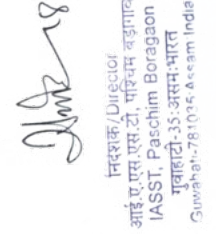 निदेशक/Director
आई.ए.एस.एस.टी, पश्चिम बड़ागांव
IASST, Paschim Boragaon
गुवाहाटी-35:असम:भारत
Guwahati-781035:Assam India